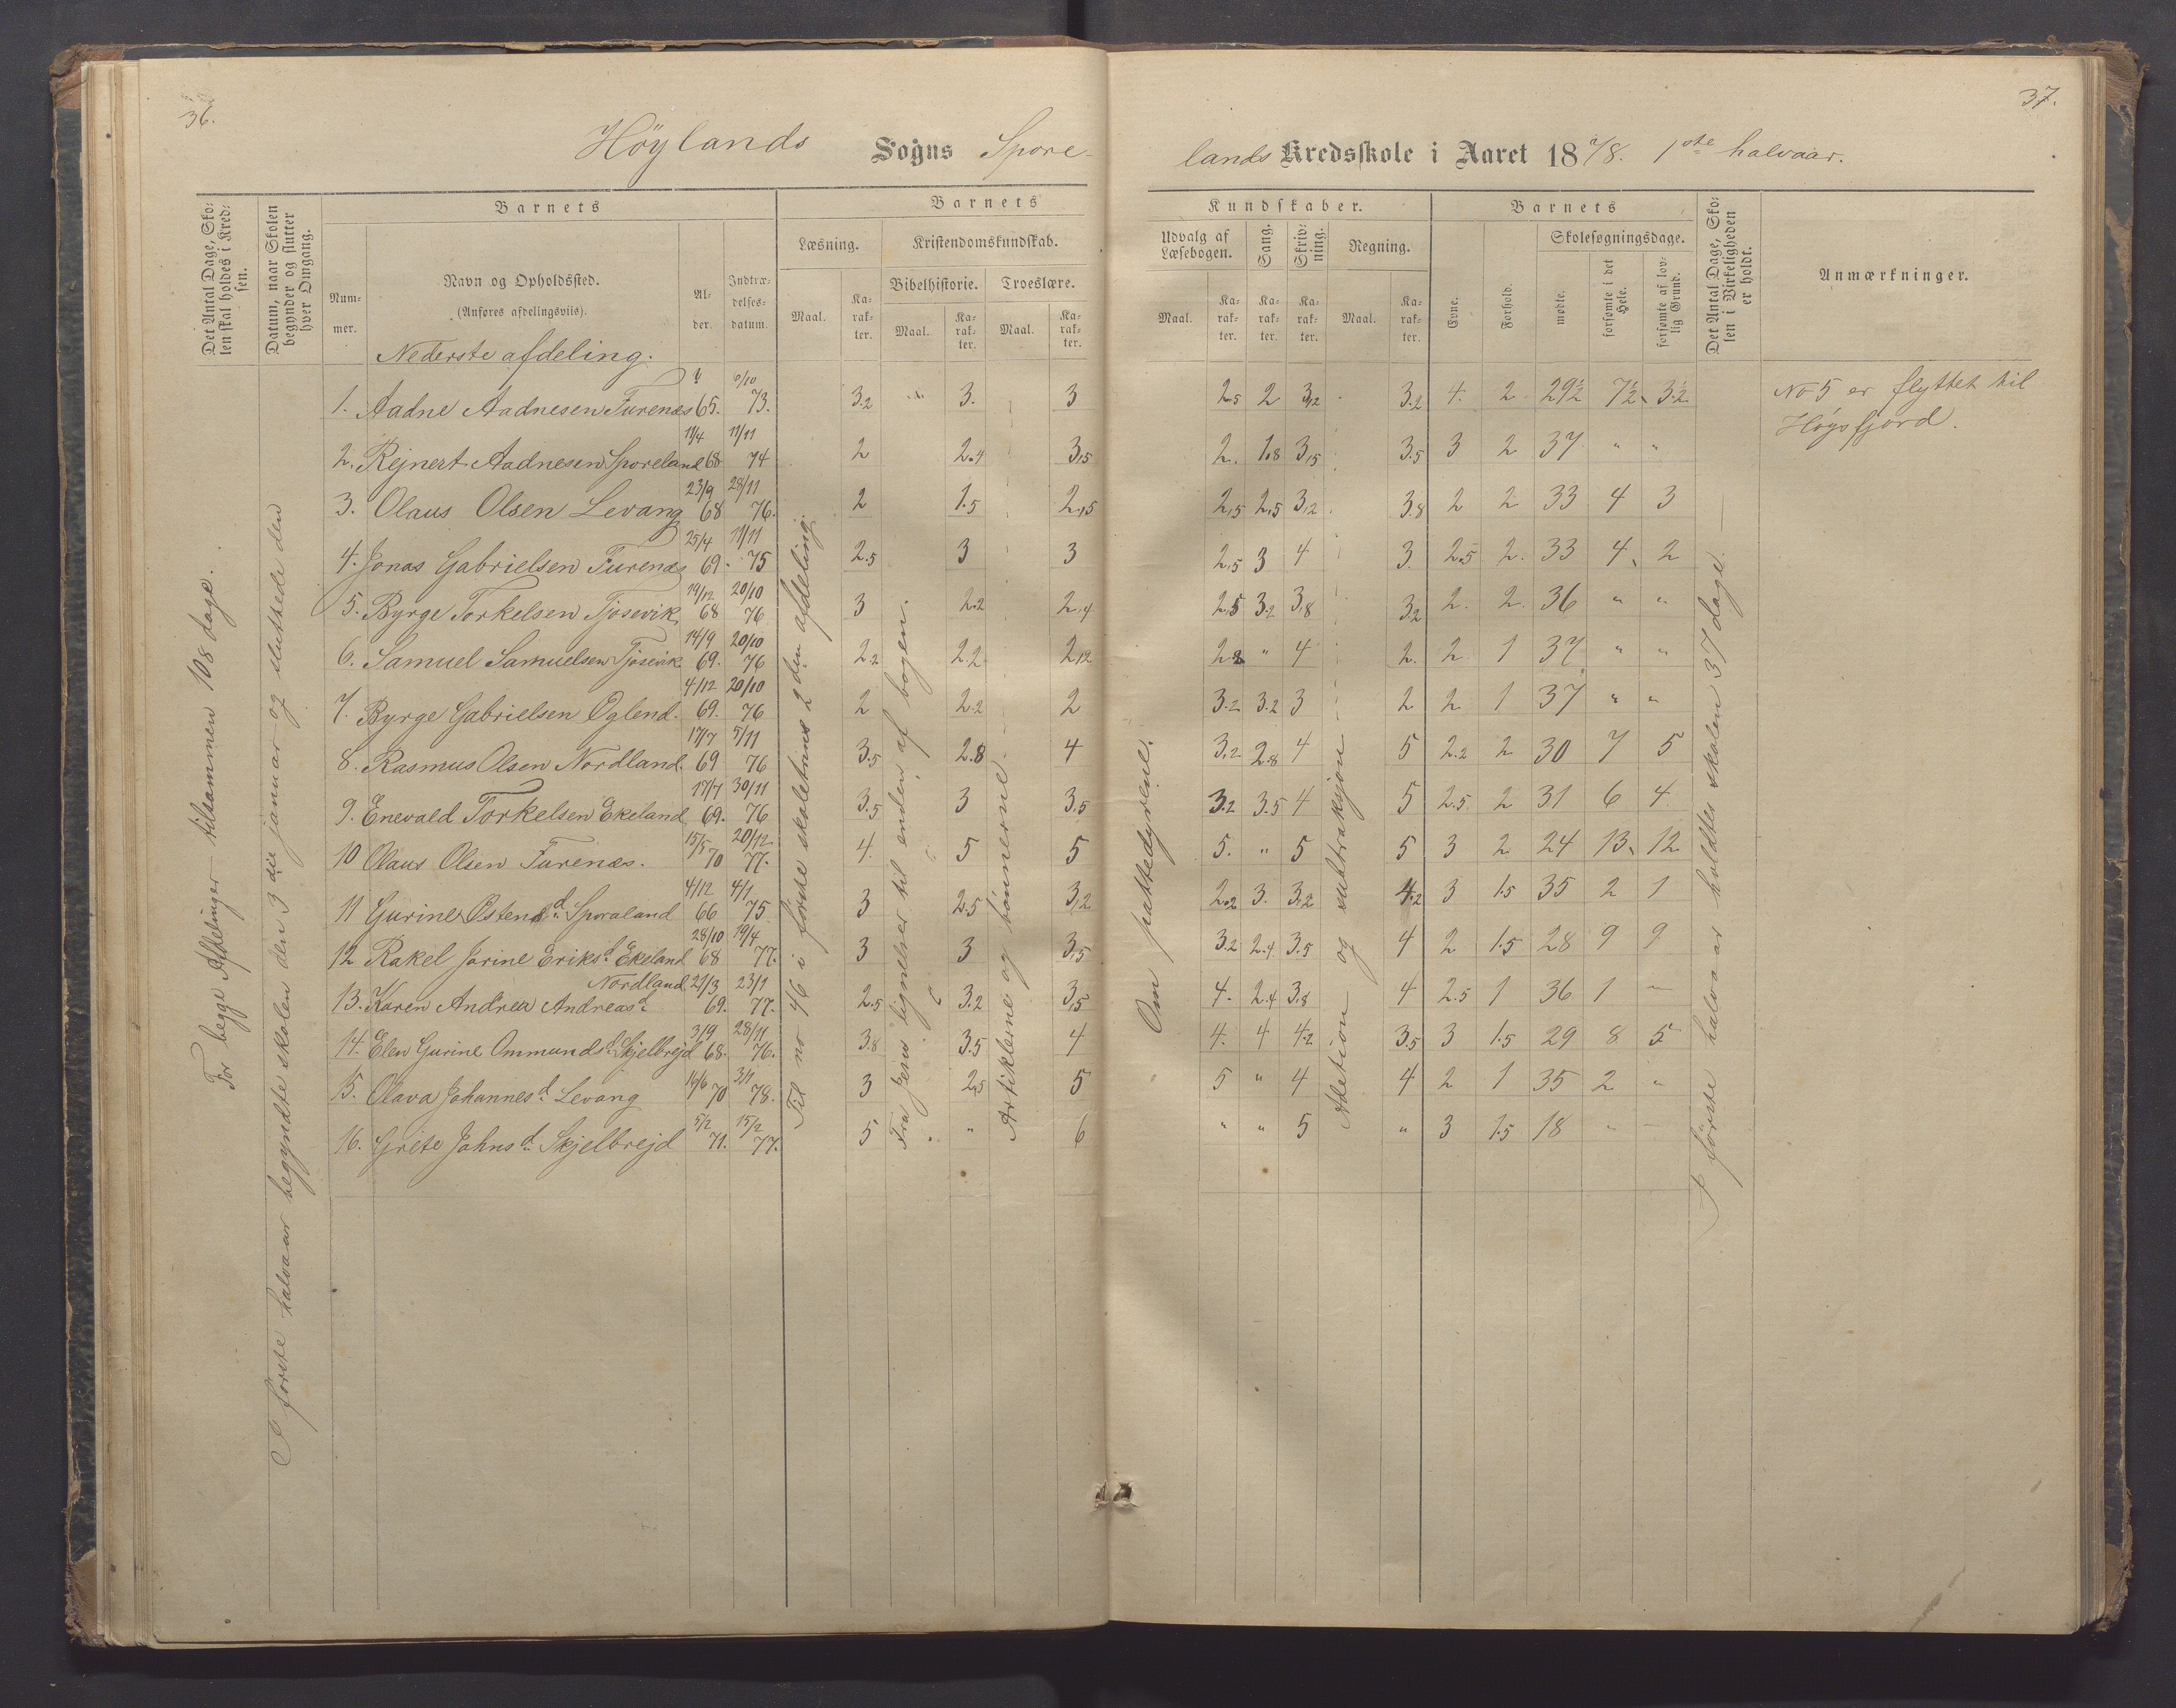 36.
37.
Höylands Sogns Spore-
lands Kredsskole i Aaret 187/8. 1ste halvaar.
Det Antal Dage, Skolen skal holdes i Kredsen.
Datum, naar Skolen begynder og slutter hver Omgang.
Barnets
Nummer.
Navn og Opholdssted.
(Anføres afdelingsviis).
Alder.
Indtrædelsesdatum.
Barnets
Læsning.
Kristendomskundskab.
Bibelhistorie.
Troeslære.
Maal.
Karakter.
Maal.
Karakter.
Maal.
Karakter.
Kundskaber.
Udvalg af Læsebogen.
Sang.
Skrivning.
Regning.
Maal.
Karakter.
Karakter.
Karakter.
Maal.
Karakter.
Barnets
Evne.
Forhold.
Skolesøgningsdage.
mødte.
forsømte i det Hele.
forsømte af lovlig Grund.
Det Antal Dage, Skolen i Virkeligheden er holdt.
Anmærkninger.
Nederste afdeling.
1. Aadne Aadnesen Furenæs 65. 73. 3.2 " 3. 3 2.5 2 3,2 3.2 4. 2 29½ 7½ 3½
2. Rejnert Aadnesen Sporeland 11/4 68 11/11 74 2 2.4 3,5 2. 1.8 3,5 3.5 3 2 37 " "
3. Olaus Olsen Levang 23/9 68 28/11 76. 2 1.5 2,5 2,5 2,5 3,2 3.8 2 2 33 4 3
4. Jonas Gabrielsen Furenæs 25/4 69. 11/11 75 2.5 3 3 2,5 3 4 3. 2.5 2. 33 4 2
5. Byrge Torkelsen Tjosevik 19/12 68 20/10 76 3 2.2 2.4 2.5 3.2 3.8 3.2 2. 2. 36 " "
6. Samuel Samuelsen Tjosevik 14/9 69. 20/10 76 2.2 2.2 2,2 2.8 " 4 2. 2 1 37 " "
7. Byrge Gabrielsen Oglend. 4/12 69. 20/10 76 2 2.2 2 3.2 3.2 3 2 2 1 37 " "
8. Rasmus Olsen Nordland. 17/7 69 5/11 76 3.5 2.8 4 3.2 2.8 4 5 2.2 2 30 7 5
9. Enevald Torkelsen Ekeland 17/7 69. 30/11 76 3.5 3 3.5 3.2 3.5 4 5 2.5 2 31 6 4
10 Olaus Olsen Furenæs. 15/5 70 20/12 77. 4. 5 5 5. " 5 5 3 2 24 13 12
11 Gurine Østensd. Sporaland 4/12 66 4/1 75. 3 2.5 3,2 2.2 3. 3.2 4.2 3 1.5 35 2 1
12 Rakel Jorine Eriksd. Ekeland 28/10 68 19/4 77. 3 3 3,5 3.2 2.4 3.5 4 2 1.5 28 9 9
13. Karen Andrea Andreasd. Nordland 21/3 69. 23/1 77. 2.5 3.2 3,5 4. 2.4 3.8 4 2.5 1 36 1 —
14. Elen Gurine Ommundsd. Skjelbrejd 3/9 68. 28/11 76. 3.8 3.5 4 4. 4 4.2 3.5 3 1.5 29 8 5
15. Olava Johannesd. Levang 14/6 70 3/1 78. 3 2,5 5 5 " 4 4 2 1 35 2 "
16. Grete Jahnsd. Skjelbrejd 5/2 71. 15/2 77. 5 " 6 " " 5 " 3 1.5 18 " —
For begge Afdelinger tilsammen 108 dage.
I første halvaar begyndte skolen den 3die januar og sluttede den
Til no 46 i første skoletrins 2den afdeling.
Fra Jesu lignelser til enden af bogen.
Artiklerne og bönnerne.
Om pattedyrene.
Adetion og subtraksjon
I første halvaar holdtes skolen 37 dage.
No 5 er flyttet til
Høgsfjord.